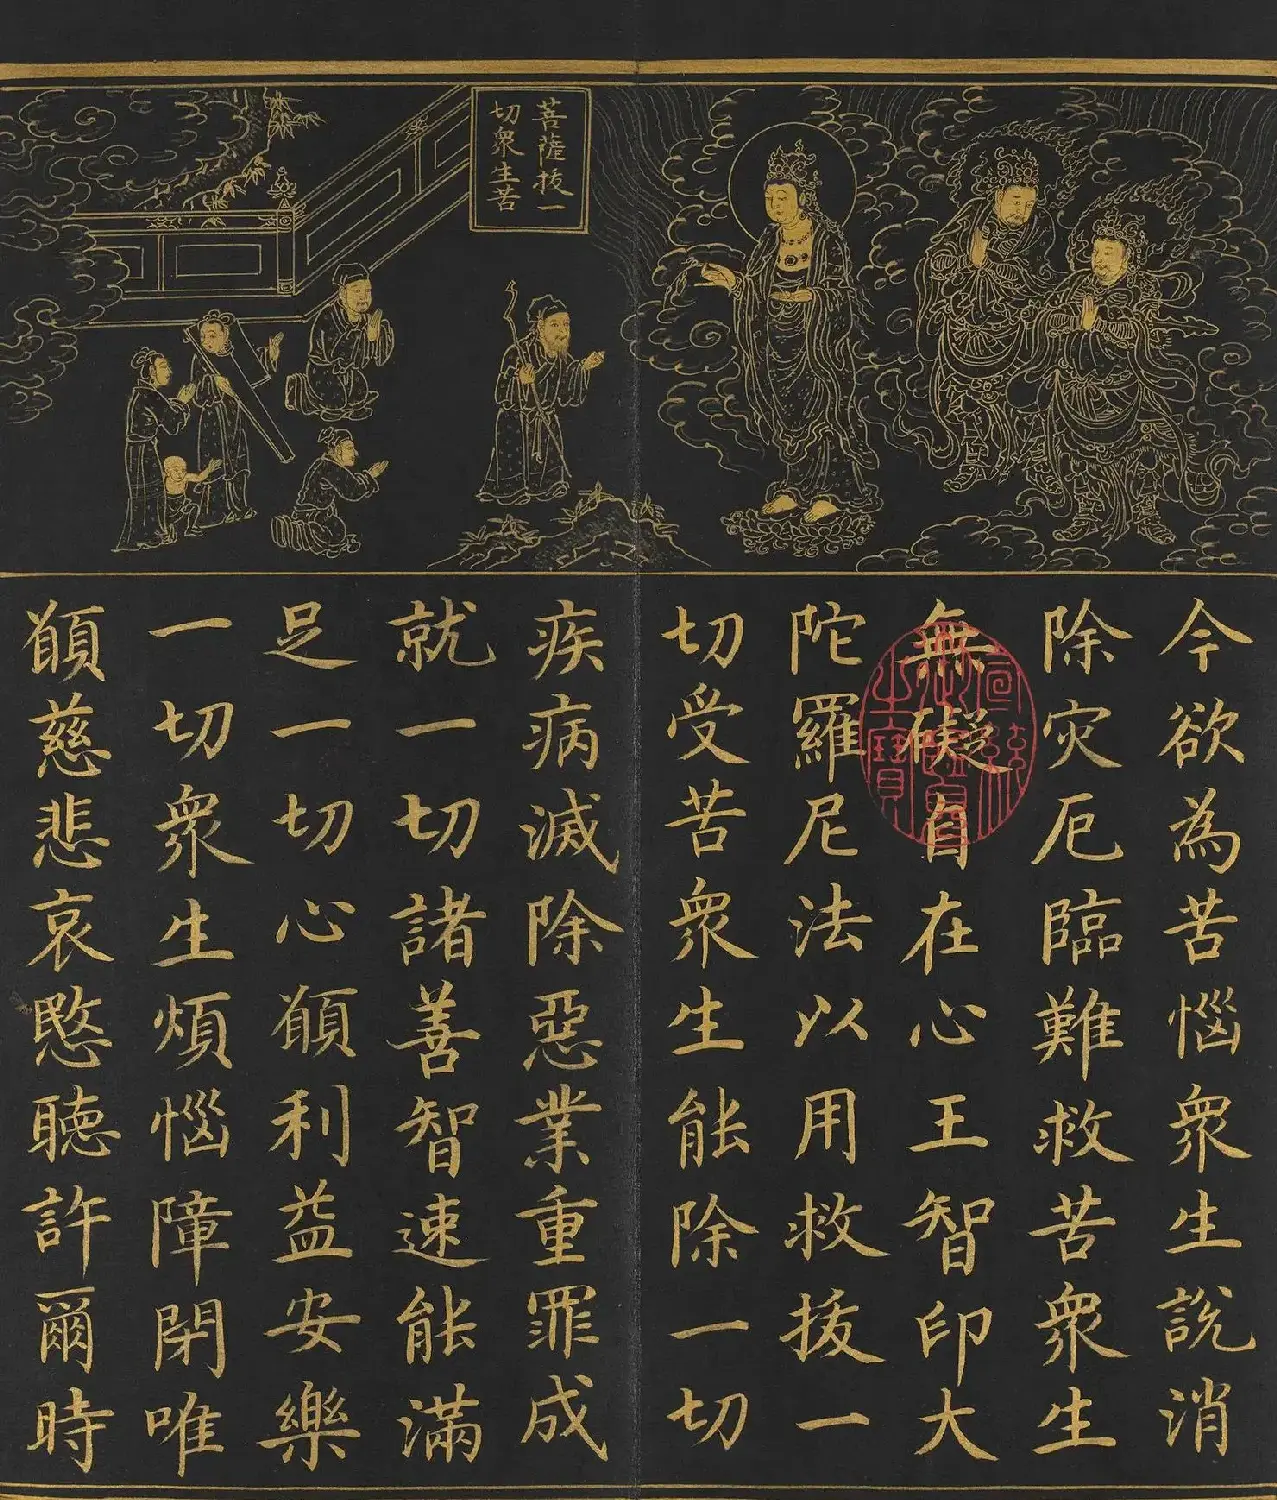 菩薩拔一
切衆生苦
今欲為苦惱衆生說消
除灾厄臨難救苦衆生
無礙自在心王智印大
陀羅尼法以用救拔一
切受苦衆生能除一切
疾病滅除惡業重罪成
就一切諸善智速能滿
足一切心願利益安樂
一切衆生煩惱障閉唯
願慈悲哀愍聽許爾時
宣統御覽之寶